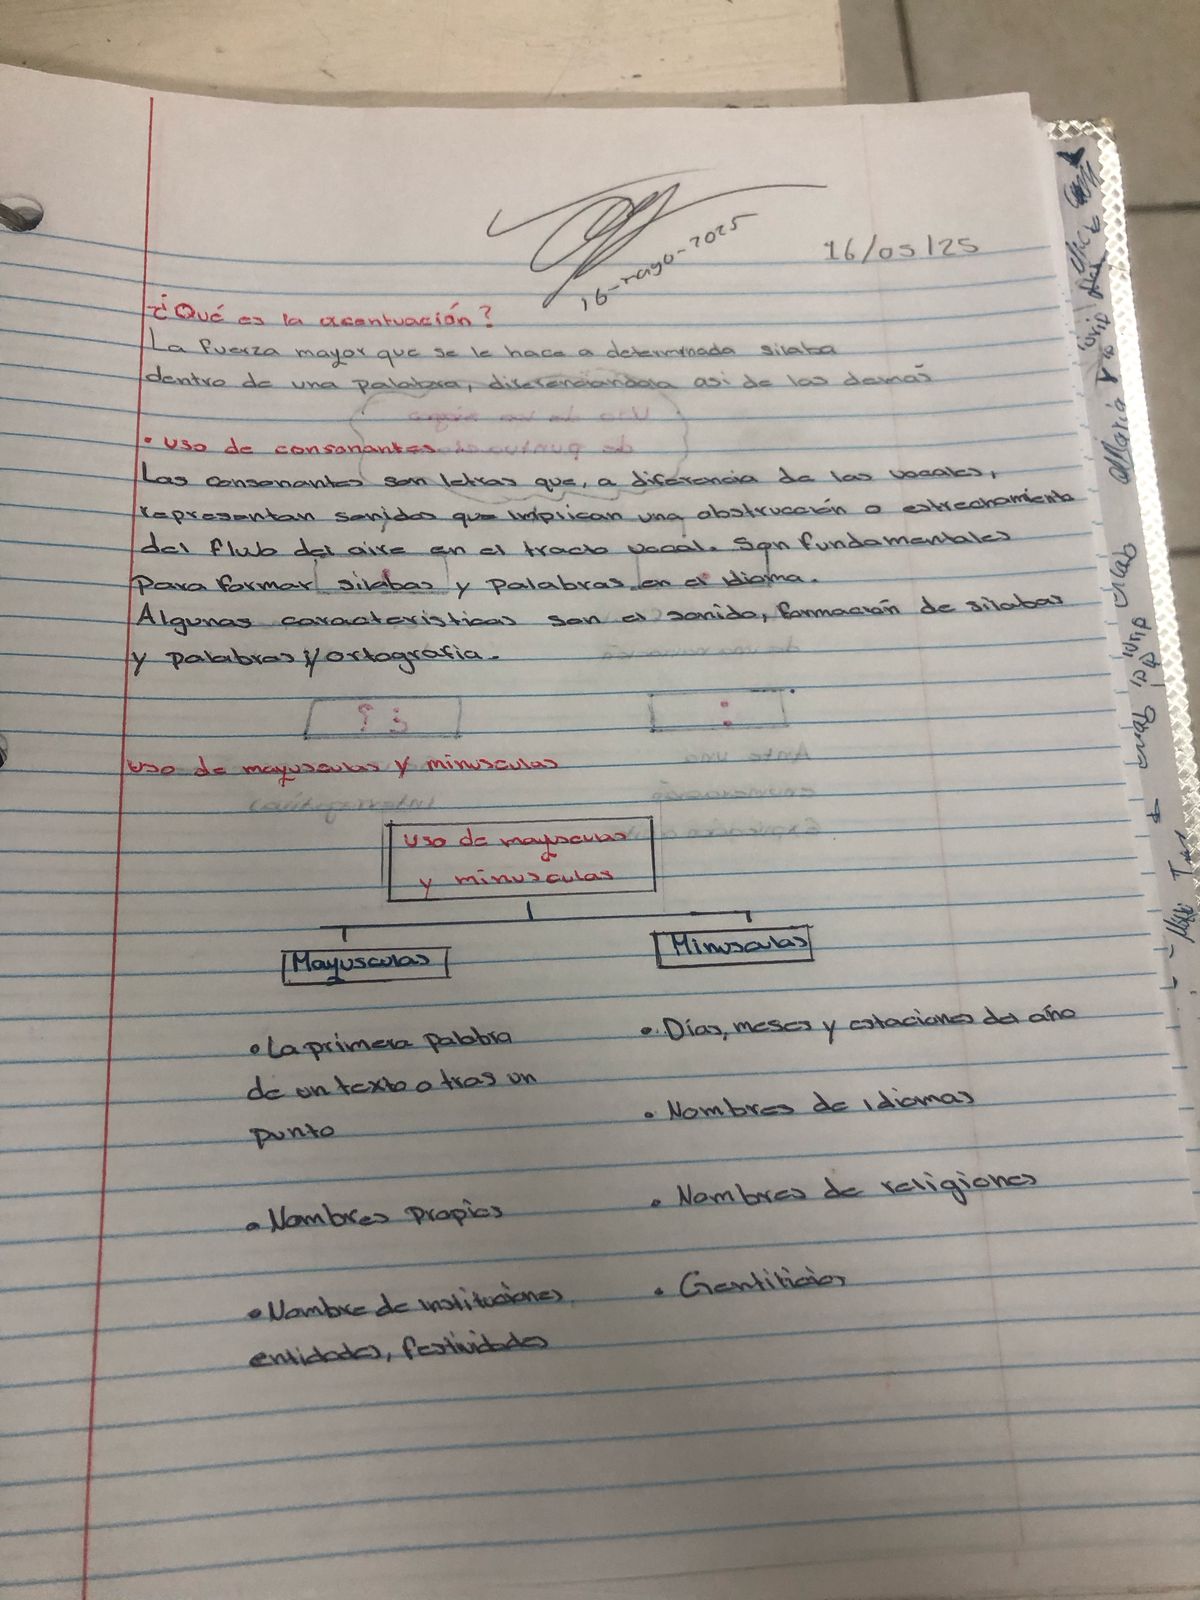 16-mayo-2025
16/05/25
¿Qué es la acentuación?
La fuerza mayor que se le hace a determinada silaba
dentro de una palabra, diferenciandola asi de las demas
• Uso de consonantes
Las consonantes son letras que, a diferencia de las vocales,
representan sonidos que implican una obstrucción o estrechamiento
del flujo del aire en el tracto vocal. Son fundamentales
para formar silabas y palabras en el idioma.
Algunas caracteristicas son el sonido, formación de silabas
y palabras y ortografia.
Uso de mayusculas y minusculas
Uso de mayusculas
y minusculas
Mayusculas
Minusculas
• La primera palabra
de un texto o tras un
punto
• Nombres propios
• Nombre de instituciones,
entidades, festividades
• Días, meses y estaciones del año
• Nombres de idiomas
• Nombres de religiones
• Gentilicios